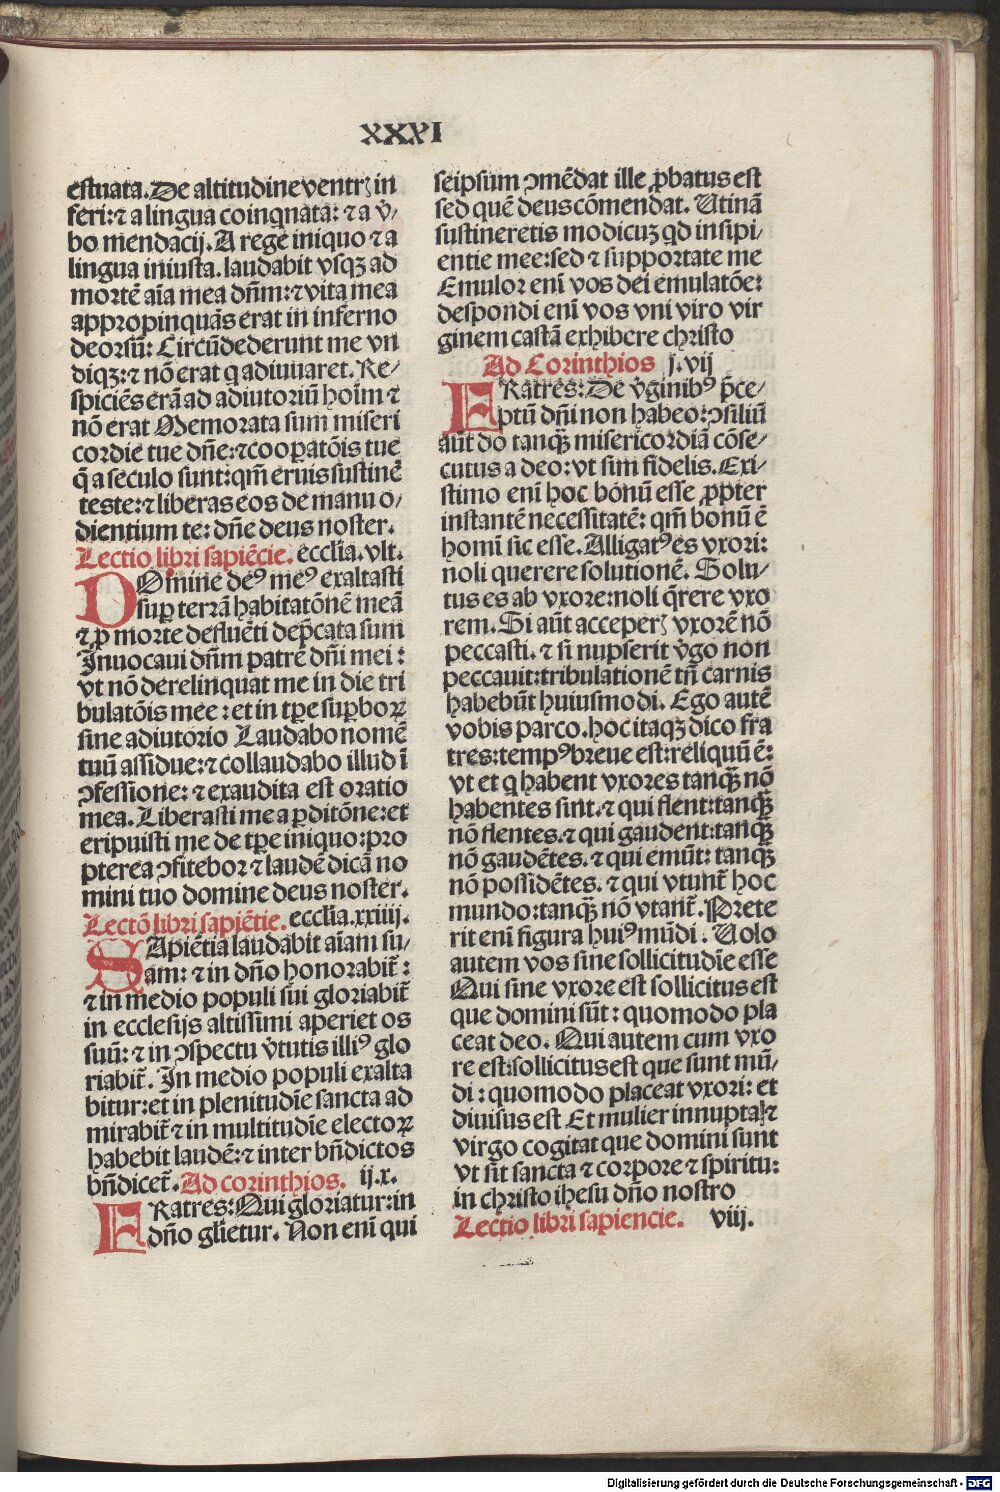 XXXVI
estuata. De altitudine ventrꝫ in
feri: ⁊ a lingua coinqnata: ⁊ a v̓/
bo mendacij. A rege iniquo ⁊ a
lingua iniusta. laudabit vsqꝫ ad
mortē aīa mea dn̄m: ⁊ vita mea
appropinquās erat in inferno
deorsū: Circūdederunt me vn
diqꝫ: ⁊ nō erat q adiuuaret. Re/
spiciēs erā ad adiutoriū hoīm ⁊
nō erat Memorata sum miseri
cordie tue dn̄e: ⁊ cooꝑatōis tue
q̄ a seculo sunt: qm̄ eruis sustinē
teste: ⁊ liberas eos de manu o/
dientium te: dn̄e deus noster.
Lectio libri sapiēcie. ecclīa. vlt.
DOmine deꝰ meꝰ exaltasti
suꝑ terrā habitatōnē meā
⁊ ꝓ morte defluēti dep̄cata sum
Inuocaui dn̄m patrē dn̄i mei:
vt nō derelinquat me in die tri
bulatōis mee: et in tꝑe suꝑboꝝ
sine adiutorio Laudabo nomē
tuū assidue: ⁊ collaudabo illud ī
ꝯfessione: ⁊ exaudita est oratio
mea. Liberasti me a ꝑditōne: et
eripuisti me de tꝑe iniquo: pro
pterea ꝯfitebor ⁊ laudē dicā no
mini tuo domine deus noster.
Lectō libri sapiētie. ecclīa. xxiiij.
SApiētia laudabit aīam su/
am: ⁊ in dn̄o honorabit̄:
⁊ in medio populi sui gloriabit̄
in ecclesijs altissimi aperiet os
suū: ⁊ in ꝯspectu v̓tutis illiꝰ glo
riabit̄. In medio populi exalta
bitur: et in plenitudīe sancta ad
mirabit̄ ⁊ in multitudīe electoꝝ
habebit laudē: ⁊ inter bn̄dictos
bn̄dicet̄. Ad corinthios. ij. x.
FRatres: Qui gloriatur: in
dn̄o glīetur. Non enī qui
seipsum ꝯmēdat ille ꝓbatus est
sed quē deus cōmendat. Utinā
sustineretis modicuꝫ qd insipi/
entie mee: sed ⁊ supportate me
Emulor enī vos dei emulatōe:
despondi enī vos vni viro vir
ginem castā exhibere christo
Ad Corinthios j. vij
FRatres: De v̓ginibꝰ p̄ce/
ptū dn̄i non habeo: ꝯsiliū
aūt do tanqꝫ̄ misericordiā cōse/
cutus a deo: vt sim fidelis. Exi/
stimo enī hoc bonū esse ꝓpter
instantē necessitatē: qm̄ bonū ē
homī sic esse. Alligatꝰ es vxori:
noli querere solutionē. Solu/
tus es ab vxore: noli q̄rere vxo
rem. Si aūt acceperꝫ vxorē nō
peccasti. ⁊ si nupserit v̓go non
peccauit: tribulationē tn̄ carnis
habebūt huiusmodi. Ego autē
vobis parco. hoc itaqꝫ dico fra
tres: tempꝰ breue est: reliquū ē:
vt et q habent vxores tanqꝫ̄ nō
habentes sint. ⁊ qui flent: tanqꝫ̄
nō flentes. ⁊ qui gaudent: tanqꝫ̄
nō gaudētes. ⁊ qui emūt: tanqꝫ̄
nō possidētes. ⁊ qui vtunt̄ hoc
mundo: tanqꝫ̄ nō vtant̄. Prete
rit enī figura huiꝰ mūdi. Uolo
autem vos sine sollicitudīe esse
Qui sine vxore est sollicitus est
que domini sūt: quomodo pla
ceat deo. Qui autem cum vxo
re est: sollicitus est que sunt mū/
di: quomodo placeat vxori: et
diuisus est Et mulier innupta: ⁊
virgo cogitat que domini sunt
vt sit sancta ⁊ corpore ⁊ spiritu:
in christo ihesu dn̄o nostro
Lectio libri sapiencie. viij.
Digitalisierung gefördert durch die Deutsche Forschungsgemeinschaft - DFG